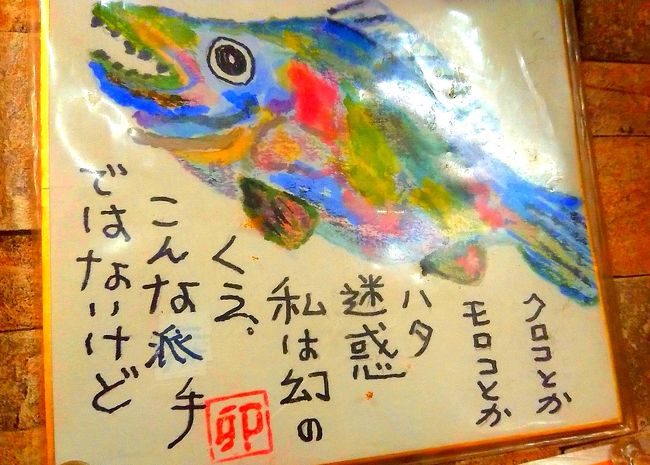 クロコとか
モロコとか
ハタ
迷惑
私は幻の
くえ。
こんな派手
ではないけど
卯